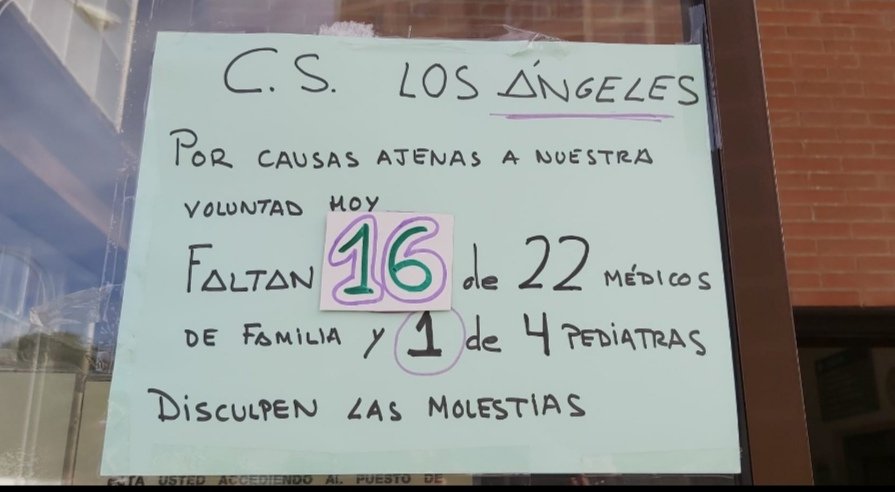 C.S. LOS ÁNGELES
POR CAUSAS AJENAS A NUESTRA
VOLUNTAD HOY
FALTAN 16 de 22 MÉDICOS
DE FAMILIA Y 1 de 4 PEDIATRAS
DISCULPEN LAS MOLESTIAS
ESTA USTED ACCEDIENDO AL PUESTO DE